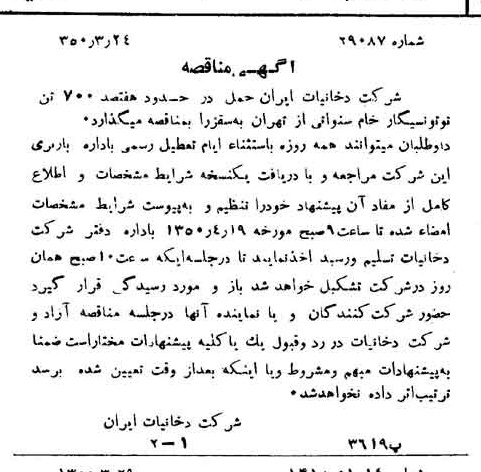 شماره ۲۹۰۸۷ ۳۵۰ر۳ر۲۴
آگهی مناقصه
شرکت دخانیات ایران حمل در حدود هفتصد ۷۰۰ تن
توتونسیگار خام سنواتی از تهران به‌سقزرا بمناقصه میگذارد۰
داوطلبان میتوانند همه روزه باستثناء ایام تعطیل رسمی باداره باربری
این شرکت مراجعه و با دریافت یکنسخه شرایط مشخصات و اطلاع
کامل از مفاد آن پیشنهاد خودرا تنظیم و به‌پیوست شرایط مشخصات
امضاء شده تا ساعت۹صبح مورخه ۱۳۵۰ر۴ر۱۹ باداره دفتر شرکت
دخانیات تسلیم ورسید اخذنمایند تا درجلسه‌ایکه ساعت۱۰صبح همان
روز درشرکت تشکیل خواهد شد باز و مورد رسیدگی قرار گیرد
حضور شرکت‌کنندگان و یا نماینده آنها درجلسه مناقصه آزاد و
شرکت دخانیات در رد وقبول یك یاکلیه پیشنهادات مختاراست ضمنا
به‌پیشنهادات مبهم ومشروط ویا اینکه بعداز وقت تعیین شده برسد
ترتیب‌اثر داده نخواهدشد۰
شرکت دخانیات ایران
پ۳۶۱۹ ۱-۲